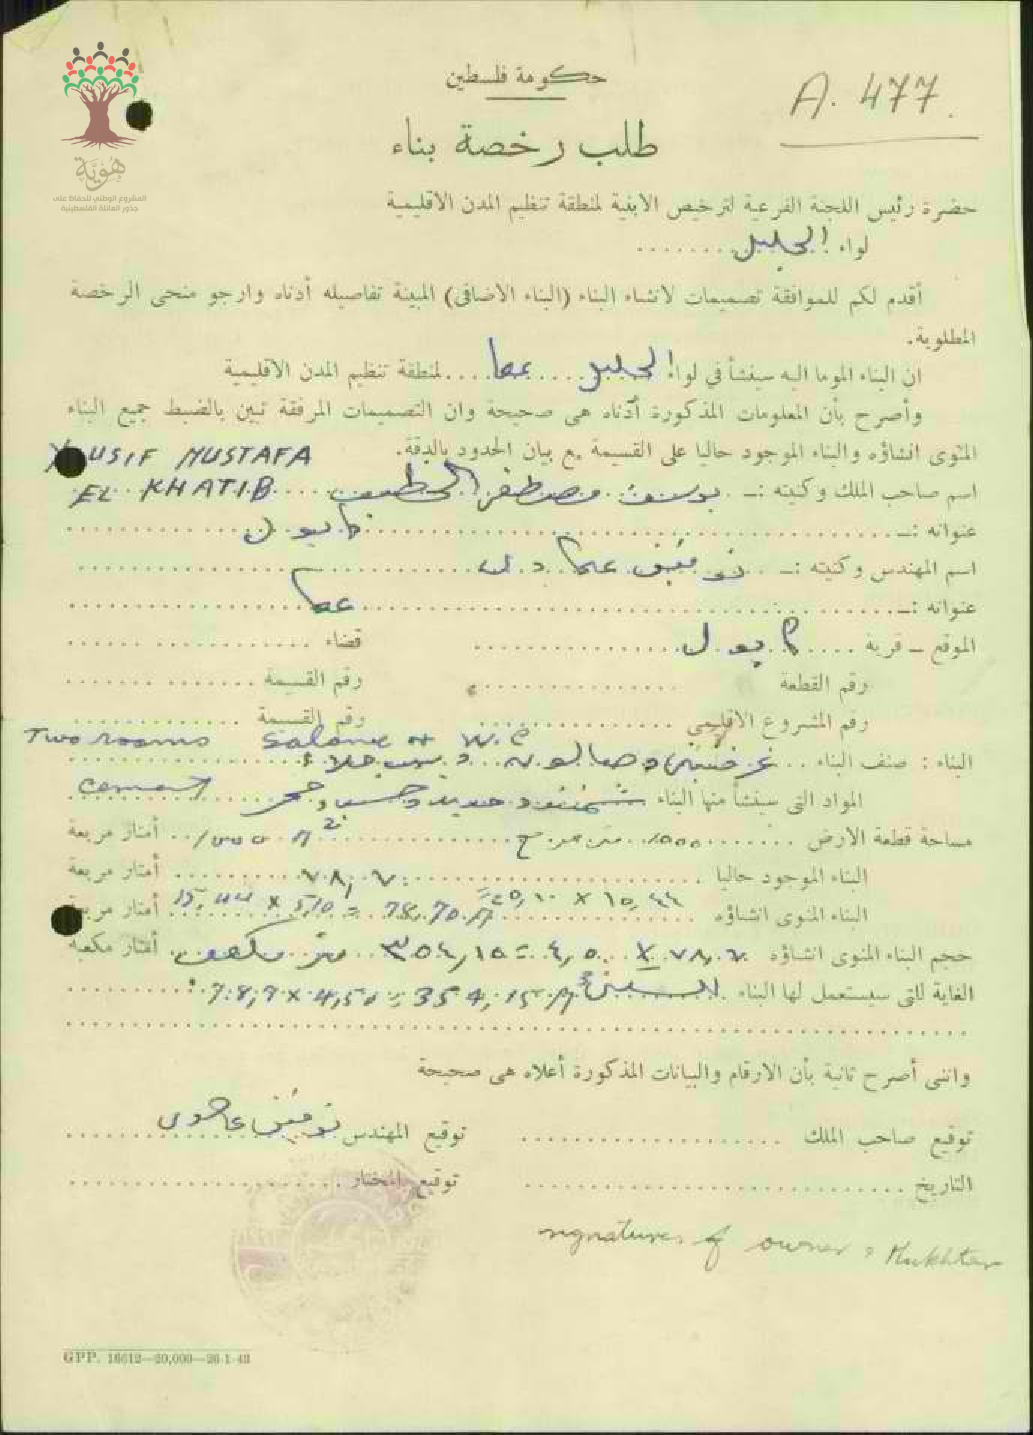 هُوِيَّة
المشروع الوطني للحفاظ على
جذور العائلة الفلسطينية
حكومة فلسطين
A. 477.
طلب رخصة بناء
حضرة رئيس اللجنة الفرعية لترخيص الابنية لمنطقة تنظيم المدن الاقليمية
لواء الجليل
أقدم لكم للموافقة تصميمات لانشاء البناء (البناء الاضافى) المبينة تفاصيله أدناه وارجو منحى الرخصة
المطلوبة.
ان البناء الموما اليه سينشأ في لواء الجليل عكا لمنطقة تنظيم المدن الاقليمية
وأصرح بأن المعلومات المذكورة أدناه هى صحيحة وان التصميمات المرفقة تبين بالضبط جميع البناء
المنوى انشاؤه والبناء الموجود حاليا على القسيمة مع بيان الحدود بالدقة.
YOUSIF MUSTAFA
EL KHATIB
اسم صاحب الملك وكنيته :ـ يوسف مصطفى الخطيب
عنوانه :ـ كابول
اسم المهندس وكنيته :ـ توفيق
عنوانه :ـ عكا
الموقع ـ قرية كابول قضاء
رقم القطعة رقم القسيمة
رقم المشروع الاقليمي رقم القسيمة
Two rooms salone + W.C
البناء : صنف البناء غرفتين وصالون وبيت خلاء
المواد التى سينشأ منها البناء شمنتو حديد وخشب وحجر cement
مساحة قطعة الارض ١٥٥٥ متر مربع أمتار مربعة
البناء الموجود حاليا ٧٨,٧٠ أمتار مربعة
البناء المنوى انشاؤه 78.70 أمتار مربعة
حجم البناء المنوى انشاؤه ٧٨,٧ X ٤,٥٠ = ٣٥٤,١٥ متر مكعب أمتار مكعبة
الغاية التى سيستعمل لها البناء للسكنى 78,7 x 4,50 = 354,15
وانى أصرح ثانية بأن الارقام والبيانات المذكورة أعلاه هى صحيحة
توقيع صاحب الملك توقيع المهندس توفيق
التاريخ توقيع المختار
signatures of owner & Mukhtar
GPP. 16612—20,000—26-1-43